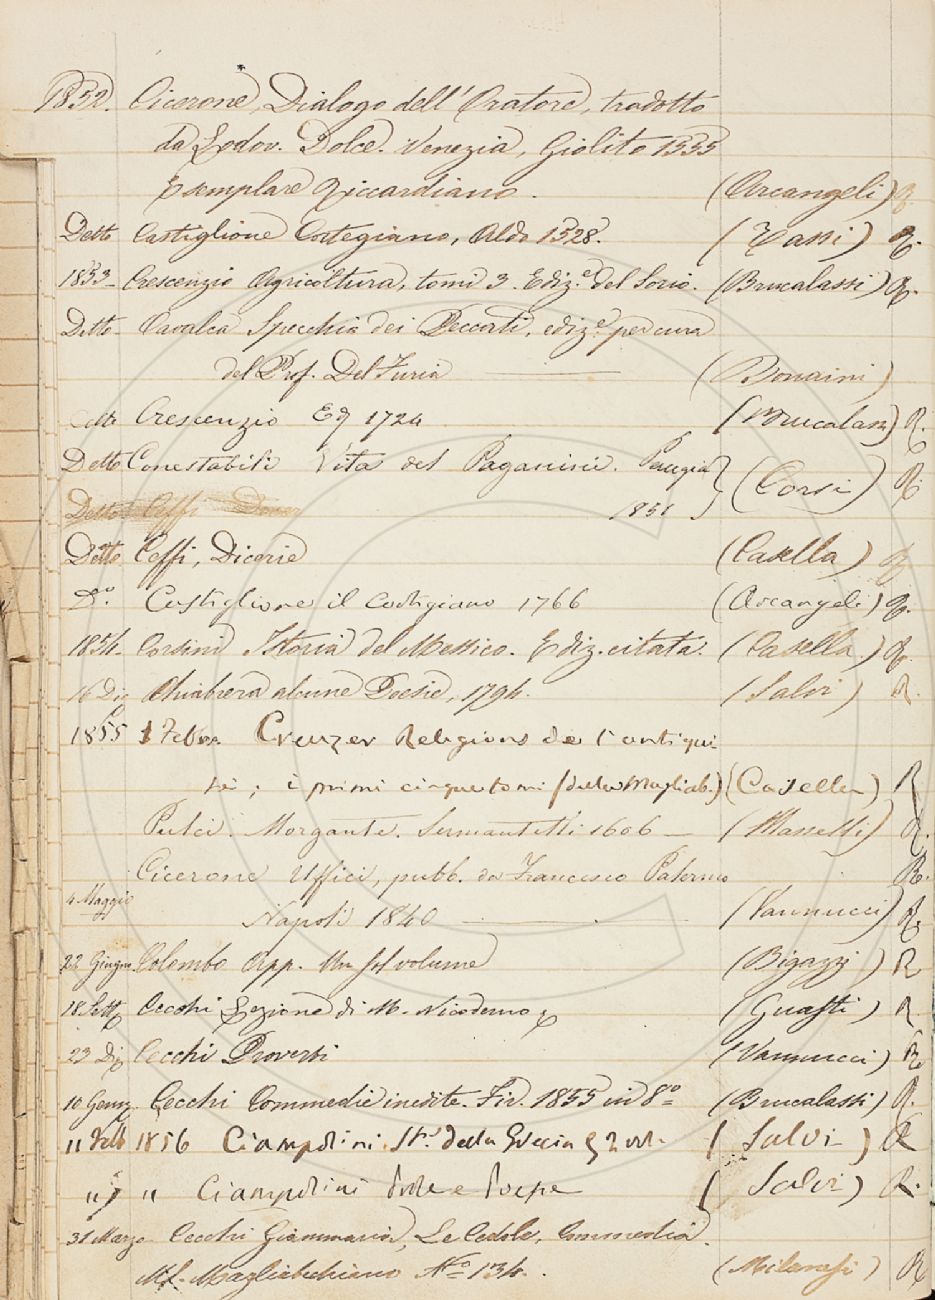 1852. Cicerone, Dialogo dell'Oratore, tradotto
da Lodov. Dolce. Venezia, Giolito 1555
Esemplare Riccardiano. (Arcangeli) R.
Detto Castiglione Cortegiano, Aldo 1528. (Tassi) R.
1853 - Crescenzio Agricoltura, tomi 3. Ediz.e del Sorio. (Brucalassi) R.
Detto - Cavalca Specchio dei Peccati, ediz.e per cura
del Prof. Del Furia (Bonaini)
Detto Crescenzio Ed 1724 (Brucalassi) R.
Detto Conestabile Vita del Paganini. Perugia (Corsi) R.
Detto Ceffi 1851
Detto Ceffi, Dicerie (Casella) R
D.o Castiglione il Cortigiano 1766 (Arcangeli) R.
1854 - Corsini Istoria del Messico. Ediz. citata. (Casella.) R.
16 Dic Chiabrera alcune Poesie, 1794. (Salvi) R.
1855 1 Febb. Creuzer Religions de l'antiqui-
té; i primi cinque tomi (della Magliab.) (Casella) R
Pulci. Morgante. Sermartelli 1606 - (Masselli) R.
Cicerone Uffici, pubb. da Francesco Palermo R.
4 Maggio Napoli 1840 (Vannucci) R.
22 Giugno Colombo Opp. Un sol volume (Bigazzi) R
18 Sett Cecchi Lezione di M. Nicodemo (Guasti) R.
23 Dic Cecchi Proverbi (Vannucci) R
10 Genn. Cecchi Commedie inedite. Fir. 1855 in 8o = (Brucalassi) R.
11 Febb 1856 Ciampolini. St.a della Grecia 2 vol. (Salvi) R
" " " Ciampolini Prose e Poesie (Salvi) R.
31 Marzo Cecchi Giammaria, Le Cedole, Commedia.
Ms. Magliabechiano No. 134. (Milanesi) R